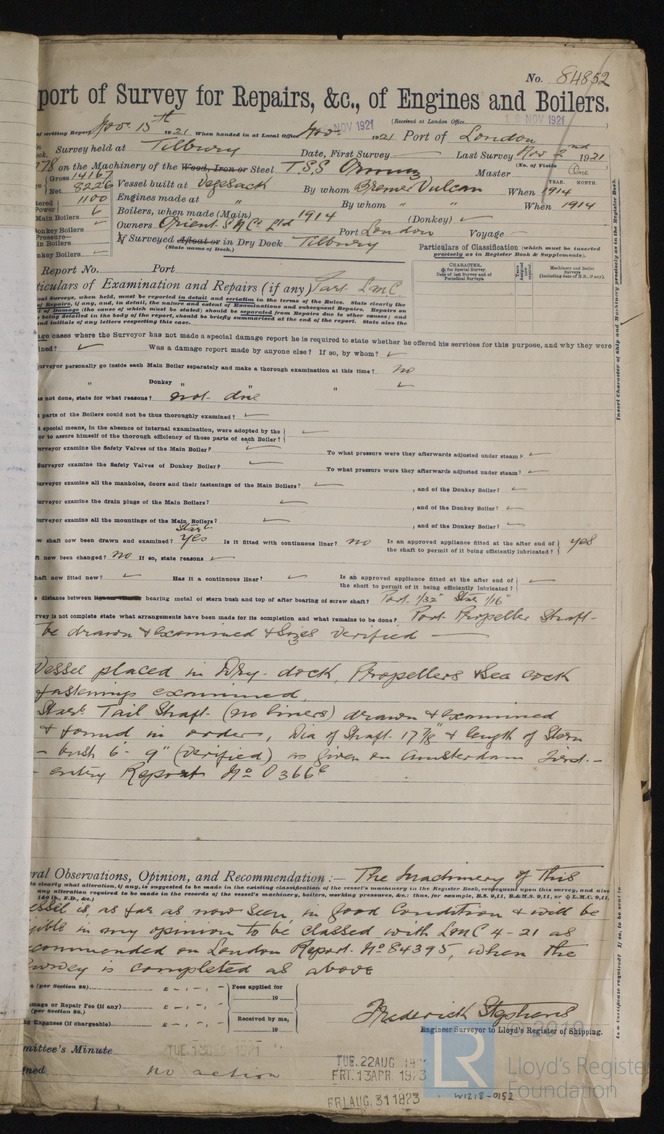 No. 84852
port of Survey for Repairs, &c., of Engines and Boilers.
(Received at London Office 16 NOV 1921
of writing Report Nov. 15th 1921 When handed in at Local Office Nov NOV 1921 1921 Port of London
Survey held at Tilbury Date, First Survey Last Survey Nov 2nd 1921
(No. of Visits One
78 on the Machinery of the Wood, Iron or Steel T.S.S Ormuz Master
Gross 14167
Net 8226 Vessel built at Vegesack By whom Bremer Vulcan When 1914
YEAR. MONTH.
1100 Engines made at " By whom " " When 1914
Power 6 Boilers, when made (Main) 1914 (Donkey)
Main Boilers Owners Orient S.N. Co. Ltd Port London Voyage
Donkey Boilers If Surveyed Afloat or in Dry Dock Tilbury
(State name of Dock.)
Particulars of Classification (which must be inserted
precisely as in Register Book & Supplements).
Report No. Port
ticulars of Examination and Repairs (if any) Part LMC
age cases where the Surveyor has not made a special damage report he is required to state whether he offered his services for this purpose, and why they were
ined? Was a damage report made by anyone else? If so, by whom?
urveyor personally go inside each Main Boiler separately and make a thorough examination at this time? no
" Donkey " " "
as not done, state for what reasons? not due
parts of the Boilers could not be thus thoroughly examined?
special means, in the absence of internal examination, were adopted by the
or to assure himself of the thorough efficiency of those parts of each Boiler?
urveyor examine the Safety Valves of the Main Boiler? To what pressure were they afterwards adjusted under steam?
Surveyor examine the Safety Valves of Donkey Boiler? To what pressure were they afterwards adjusted under steam?
urveyor examine all the manholes, doors and their fastenings of the Main Boilers? , and of the Donkey Boiler?
urveyor examine the drain plugs of the Main Boilers? , and of the Donkey Boiler?
urveyor examine all the mountings of the Main Boilers? , and of the Donkey Boiler?
w shaft now been drawn and examined? Starb Yes Is it fitted with continuous liner? no Is an approved appliance fitted at the after end of
the shaft to permit of it being efficiently lubricated? yes
ft now been changed? no If so, state reasons
haft now fitted new? Has it a continuous liner? Is an approved appliance fitted at the after end of
the shaft to permit of it being efficiently lubricated?
e distance between lignum vitae or bearing metal of stern bush and top of after bearing of screw shaft? Port 1/32" Star 1/16"
rvey is not complete state what arrangements have been made for its completion and what remains to be done? Port Propeller Shaft
be drawn & examined & sizes verified
Vessel placed in Dry-dock, Propellers & Sea cock
fastenings examined,
Starb Tail Shaft (no liners) drawn & examined
& found in order, Dia of Shaft 17 7/8" & length of Stern
bush 6'- 9" (verified) as given on Amsterdam First-
entry Report No 0366e
ral Observations, Opinion, and Recommendation:— The Machinery of this
essel is, as far as now seen, in good Condition & will be
gible in my opinion to be classed with LMC 4-21 as
commended on London Report. No 84395, when the
Survey is completed as above
(per Section 28) £ - , - , - Fees applied for
19
amage or Repair Fee (if any) £ - , - , -
(per Section 28.)
g Expenses (if chargeable) £ - , - , - Received by me,
19
Frederick Stephens
Engineer Surveyor to Lloyd's Register of Shipping.
mmittee's Minute
gned no action
TUE. 22 AUG.
FRI. 13 APR. 1923
FRI. AUG. 31 1923
LR
© 2019
Lloyd's Register
Foundation
W1218-0152